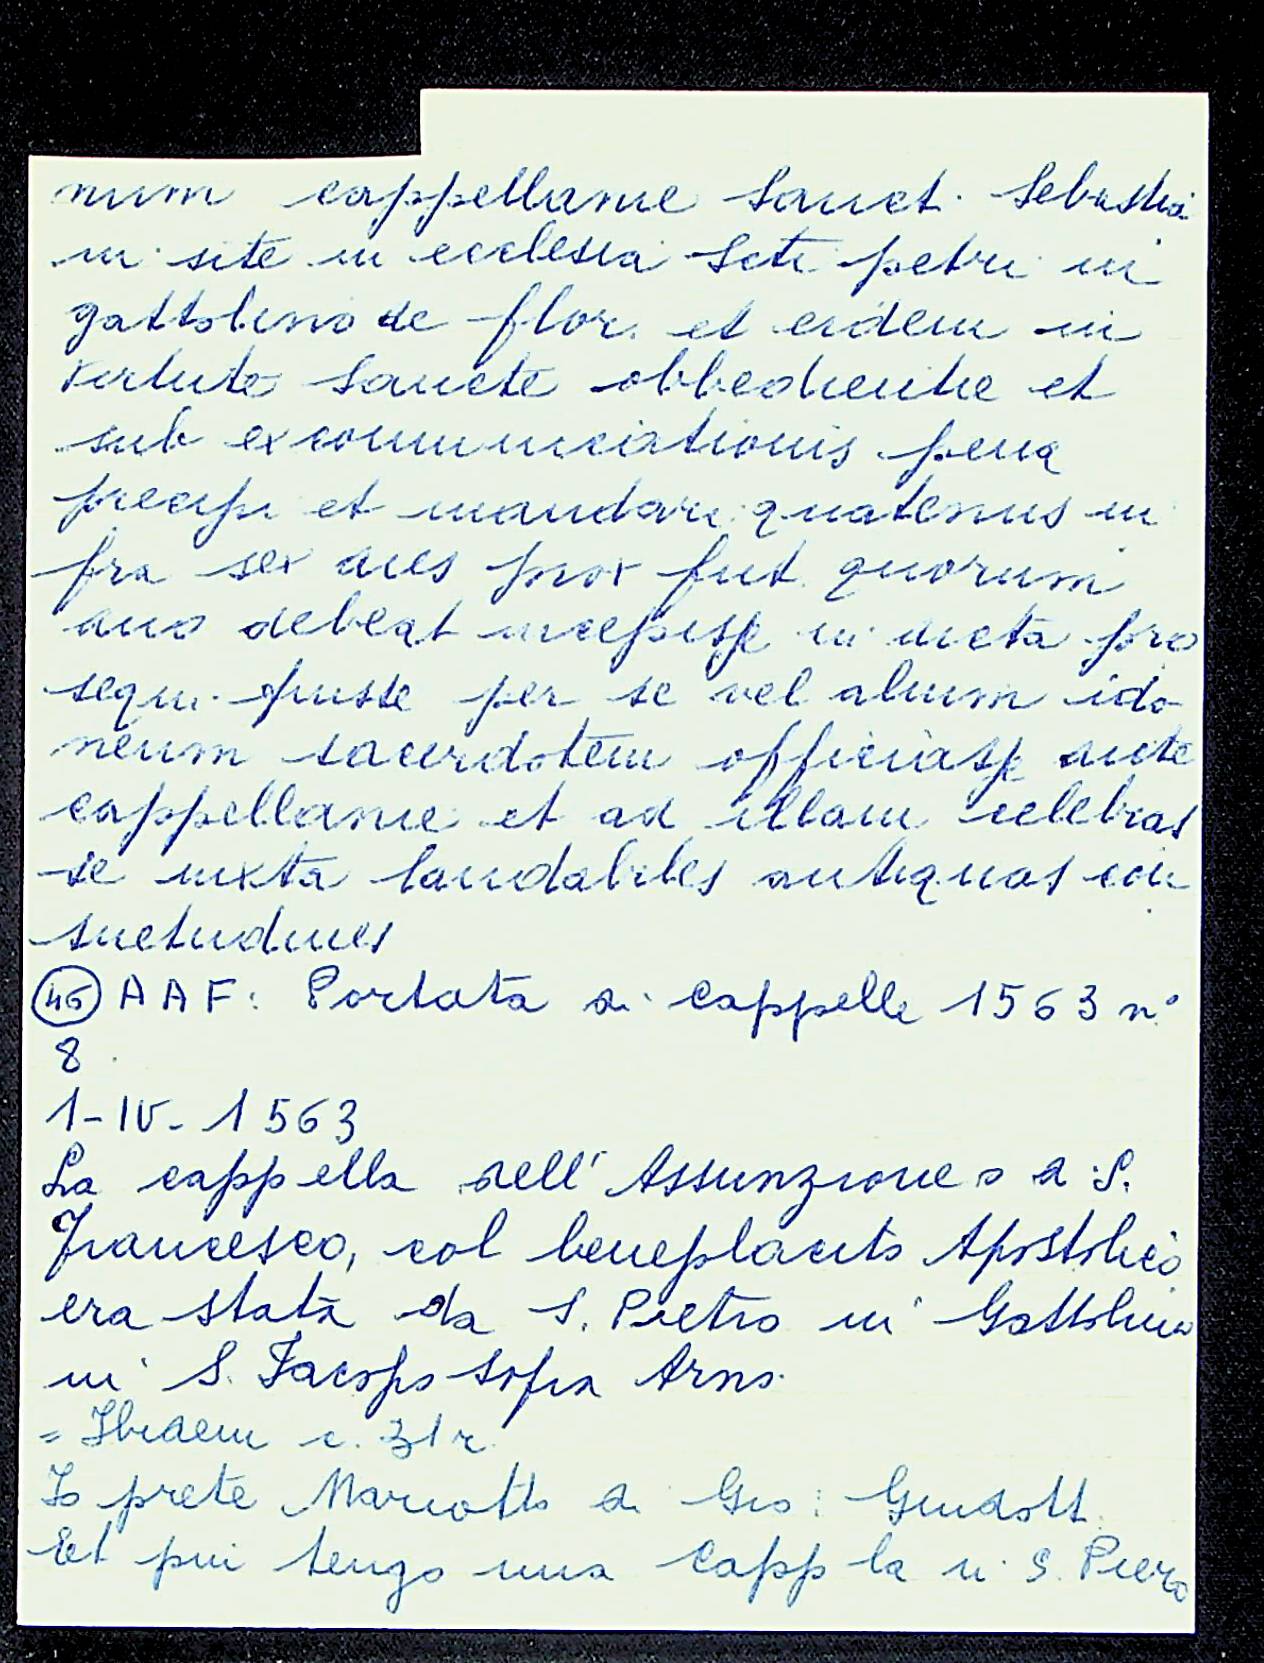 num cappellanie Sanct. Sebastia
ni site in ecclesia Scti petri in
gattolino de flor. et eidem in
virtute Sancte obbedientie et
sub excommunicationis pena
precepi et mandavi quatenus in
fra sex dies prox fut. quorum
duo debeat incepisse in dicta pro
sequi juste per se vel alium ido
neum sacerdotem officiasse dicte
cappellanie et ad illam celebras
se iuxta laudabiles antiquas con
suetudines
(46) AAF: Portata di cappelle 1563 n°
8
1-IV-1563
La cappella dell'Assunzione o di S.
Francesco, col beneplacito Apostolico
era stata da S. Pietro in Gattolino
in S. Jacopo sopra Arno.
= Ibidem c. 31r.
Io prete Mariotto di Gio: Guidott.
Et piu tengo una capp la in S. Piero